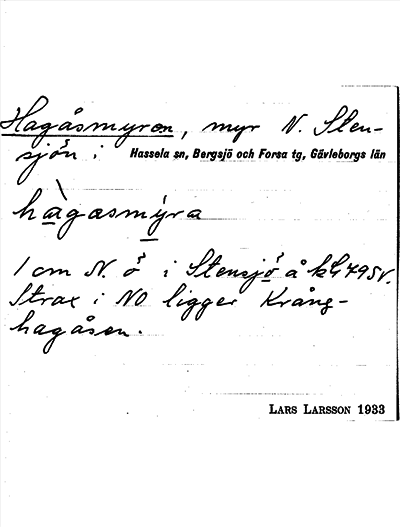 Hagåsmyren, myr N. Sten-
sjön i Hassela sn, Bergsjö och Forsa tg, Gävleborgs län
hàgasmýra
1 cm N. ö i Stensjö å kbl 795v.
Strax i NO ligger Krång-
hagåsen.
LARS LARSSON 1933